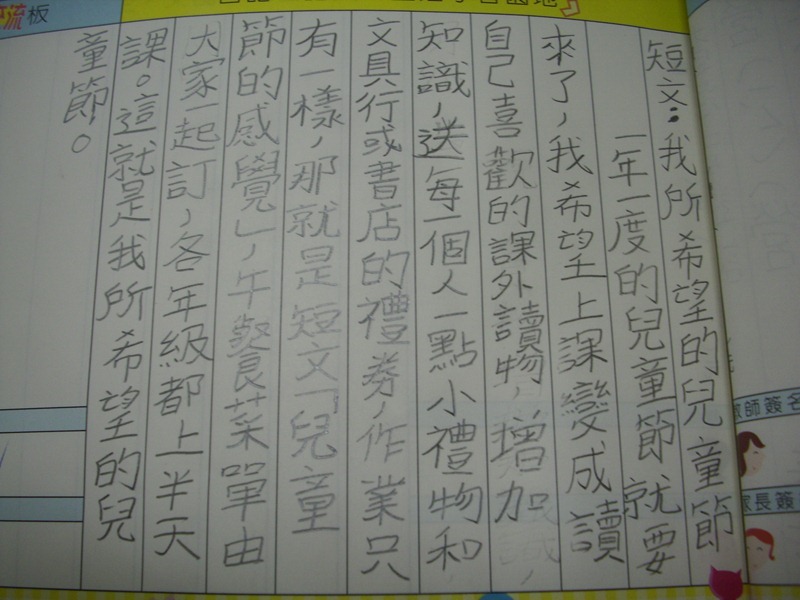 短文：我所希望的兒童節
一年一度的兒童節就要
來了，我希望上課變成讀
自己喜歡的課外讀物，增加
知識，送每一個人一點小禮物和
文具行或書店的禮券，作業只
有一樣，那就是短文「兒童
節的感覺」，午餐菜單由
大家一起訂，各年級都上半天
課。這就是我所希望的兒
童節。
流板
教師簽名
家長簽